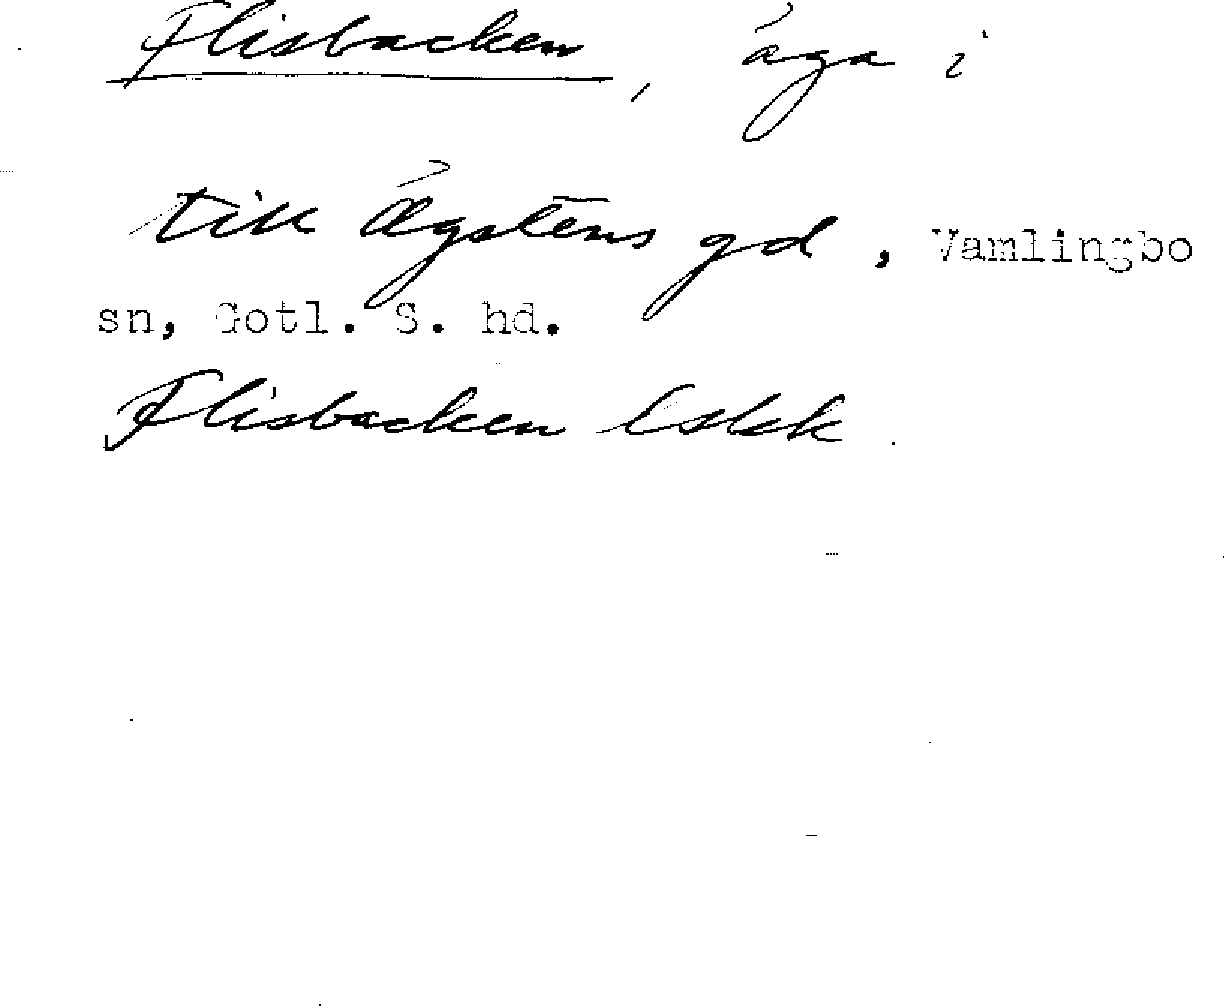 Flisbacken, äga i
till Ägstens gd, Vamlingbo
sn, Gotl. S. hd.
Flisbacken